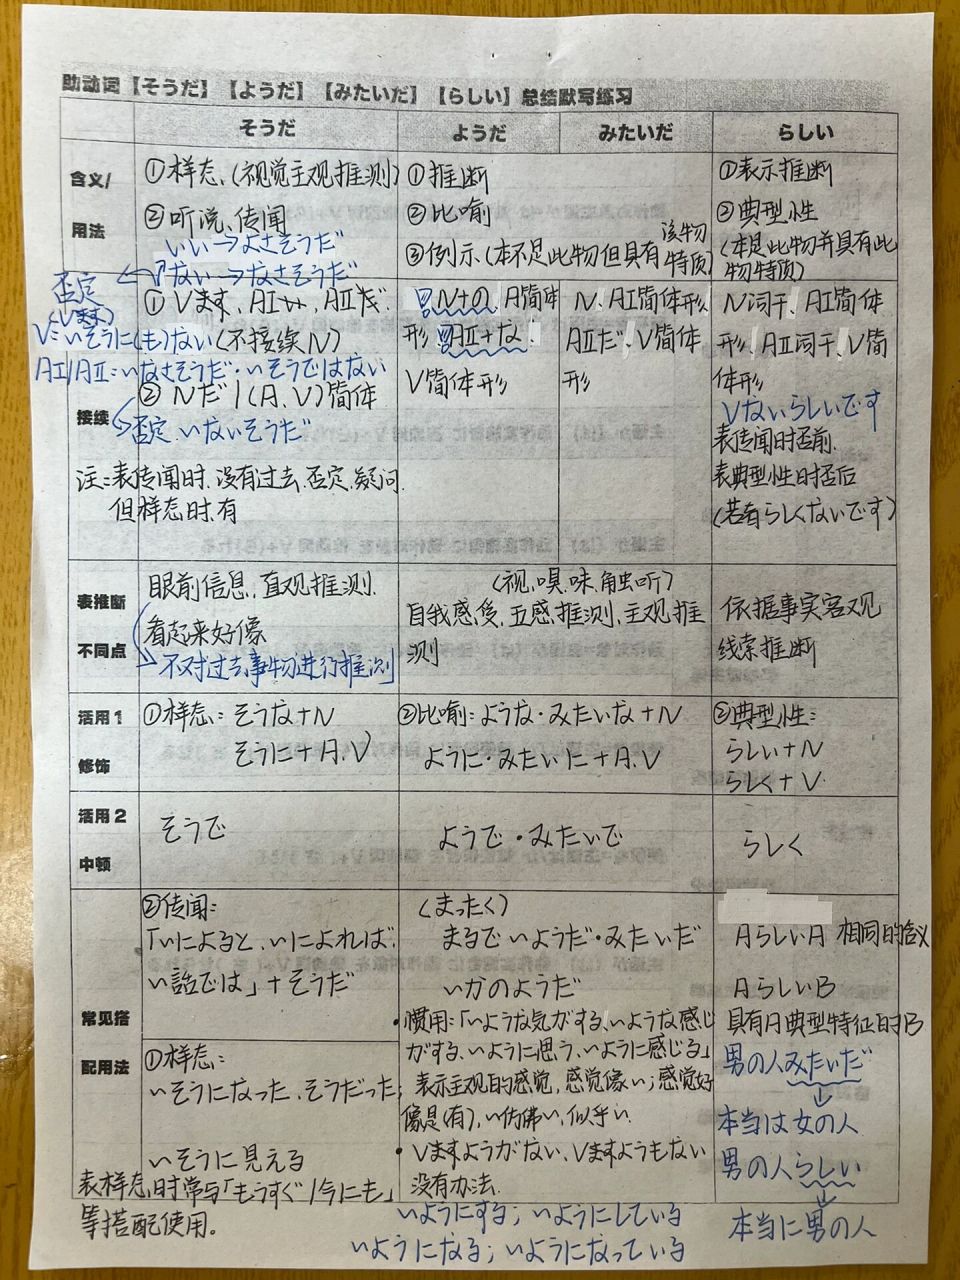 助动词【そうだ】【ようだ】【みたいだ】【らしい】总结默写练习
そうだ
ようだ
みたいだ
らしい
含义/
用法
①样态、(视觉主观推测)
②听说、传闻
いい→よさそうだ
ない→なさそうだ
①推断
②比喻
③例示、(本不是此物但具有该物特质)
①表示推断
②典型性
(本是此物并具有此
物特质)
接续
否定
(Vます)
V=いそうに(も)ない
AⅠ/AⅡ=いなさそうだ・いそうではない
①Vます、AⅠい、AⅡだ
(不接续N)
②Nだ/(A、V)简体
否定、いないそうだ
注:表传闻时、没有过去、否定、疑问
但样态时、有
N+の、A简体
形、AⅡ+な、
V简体形
N、AⅠ简体形
AⅡだ、V简体
形
N词干、AⅠ简体
形、AⅡ词干、V简
体形
Vないらしいです
表传闻时否前、
表典型性时否后
(若者らしくないです)
表推断
不同点
眼前信息、直观推测、
看起来好像
不对过去事物进行推测
(视、嗅、味、触、听)
自我感受、五感推测、主观推
测
依据事实客观
线索推断
活用1
修饰
①样态:そうな+N
そうに+A、V
②比喻:ような・みたいな+N
ように・みたいに+A、V
②典型性:
らしい+N
らしく+V
活用2
中顿
そうで
ようで・みたいで
らしく
常见搭
配用法
②传闻:
「いによると、いによれば、
い話では」+そうだ
①样态:
いそうになった、そうだった;
いそうに見える
表样态时常与「もうすぐ/今にも」
等搭配使用。
(まったく)
まるでいようだ・みたいだ
いかのようだ
・惯用:「いような気がする、いような感じ
がする、いように思う、いように感じる」
表示主观的感觉,感觉像い;感觉好
像是(有),い仿佛い、似乎い
・Vますようがない、Vますようもない
没有办法
いようにする;いようにしている
いようになる;いようになっている
AらしいA 相同的含义
AらしいB
具有A典型特征的B
男の人みたいだ
↓
本当は女の人
男の人らしい
↓
本当に男の人